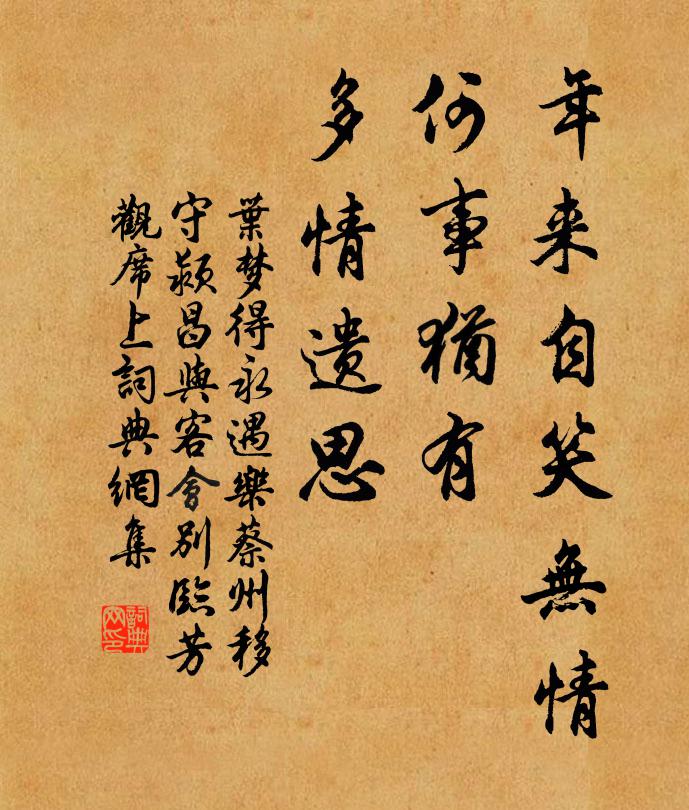 年来自笑無情
何事猶有
多情遺思
葉梦得永遇樂蔡州移
守潁昌與客會別臨芳
觀席上詞典網集
詞典網印